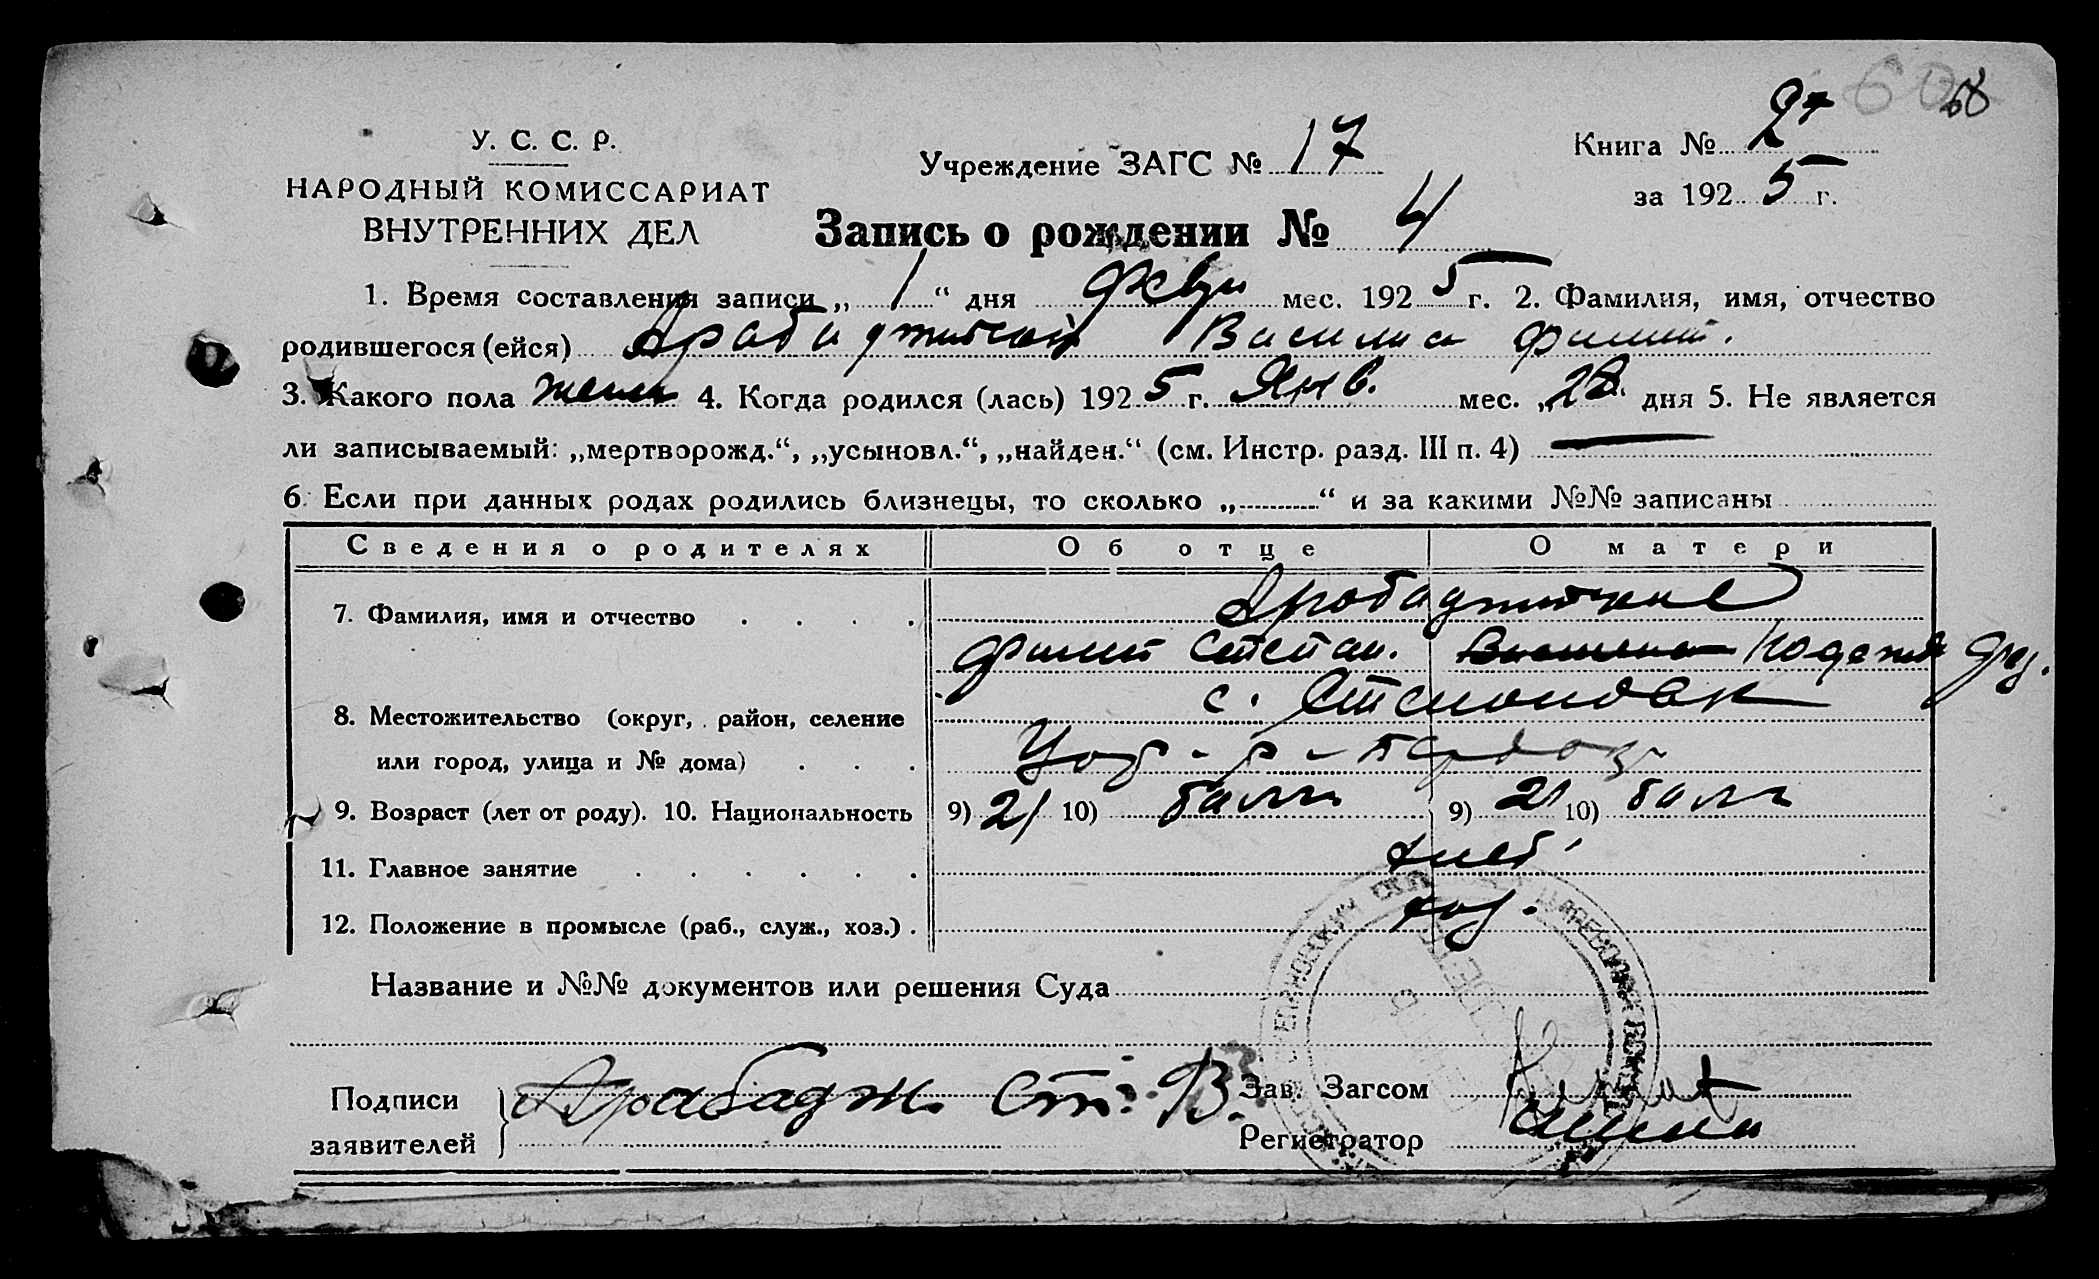 68
У. С. С. Р.
НАРОДНЫЙ КОМИССАРИАТ
ВНУТРЕННИХ ДЕЛ
Учреждение ЗАГС № 17
Книга № 2
за 1925 г.
Запись о рождении № 4
1. Время составления записи „ 1 “ дня Февр мес. 1925 г. 2. Фамилия, имя, отчество
родившегося (ейся) Василиса Филип.
3. Какого пола женск 4. Когда родился (лась) 1925 г. Янв. мес. „28“ дня 5. Не является
ли записываемый: „мертворожд.“, „усыновл.“, „найден.“ (см. Инстр. разд. III п. 4)
6. Если при данных родах родились близнецы, то сколько „ “ и за какими №№ записаны
Сведения о родителях Об отце О матери
7. Фамилия, имя и отчество
Филип Степан.
8. Местожительство (округ, район, селение
или город, улица и № дома)
9. Возраст (лет от роду). 10. Национальность 9) 21 10) болг 9) 21 10) болг
11. Главное занятие хлеб.
12. Положение в промысле (раб., служ., хоз.) хоз.
Название и №№ документов или решения Суда
Подписи
заявителей
Арабадж. Ст. В.
Зав. Загсом
Регистратор